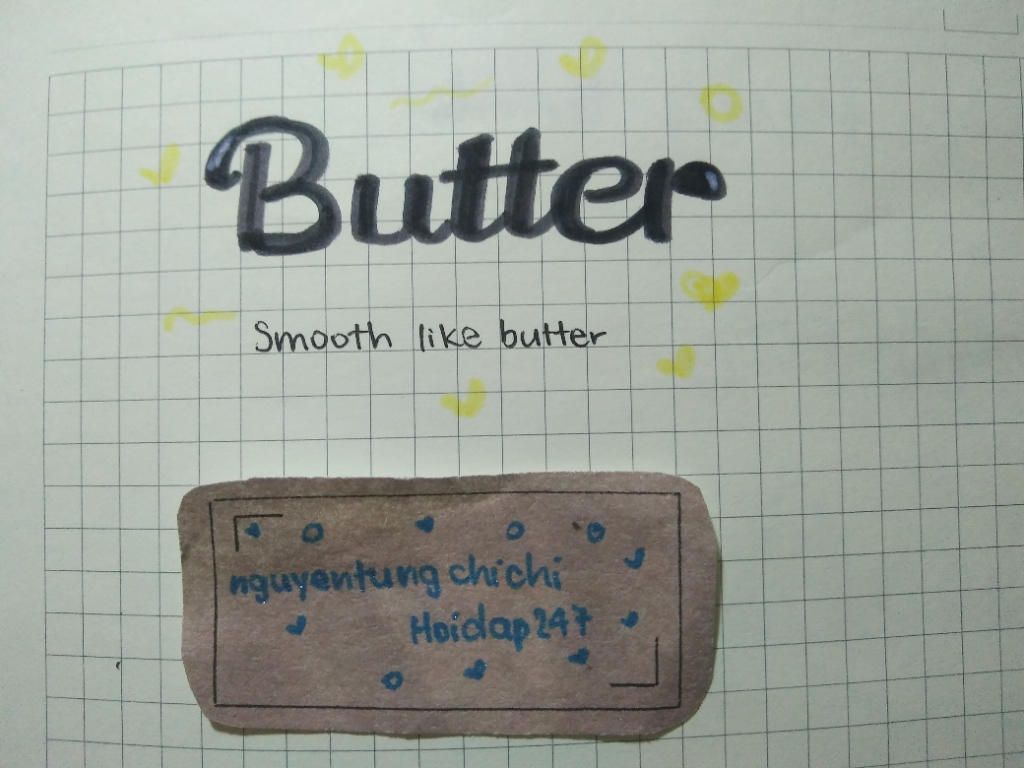 Butter
Smooth like butter
nguyentung chichi
Hoidap247